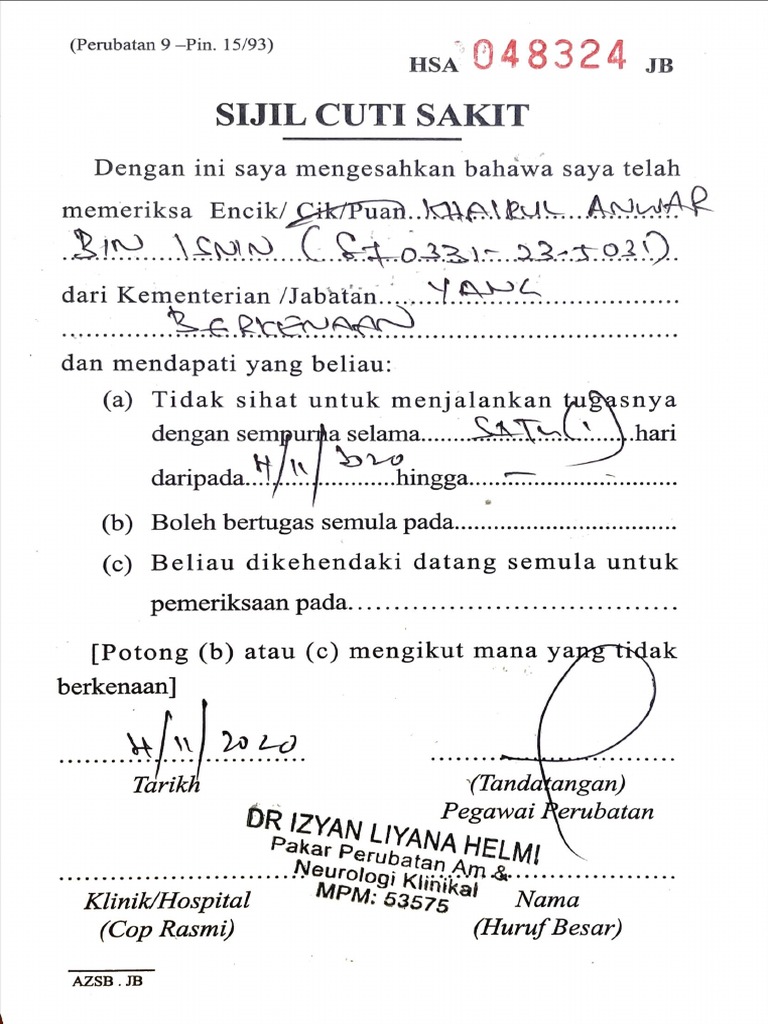 (Perubatan 9 –Pin. 15/93)
HSA 048324 JB
SIJIL CUTI SAKIT
Dengan ini saya mengesahkan bahawa saya telah
memeriksa Encik/ Cik/Puan..KHAIRUL ANWAR
BIN ISNIN (870331-23-5031)
dari Kementerian /Jabatan....YANG
BERKENAAN
dan mendapati yang beliau:
(a) Tidak sihat untuk menjalankan tugasnya
dengan sempurna selama.....SATU (1).....hari
daripada.../11/2020...hingga....–....
(b) Boleh bertugas semula pada..................................
(c) Beliau dikehendaki datang semula untuk
pemeriksaan pada..................................
[Potong (b) atau (c) mengikut mana yang tidak
berkenaan]
/11/2020
Tarikh
(Tandatangan)
Pegawai Perubatan
DR IZYAN LIYANA HELMI
Pakar Perubatan Am &
Neurologi Klinikal
MPM: 53575
Klinik/Hospital
(Cop Rasmi)
Nama
(Huruf Besar)
AZSB . JB